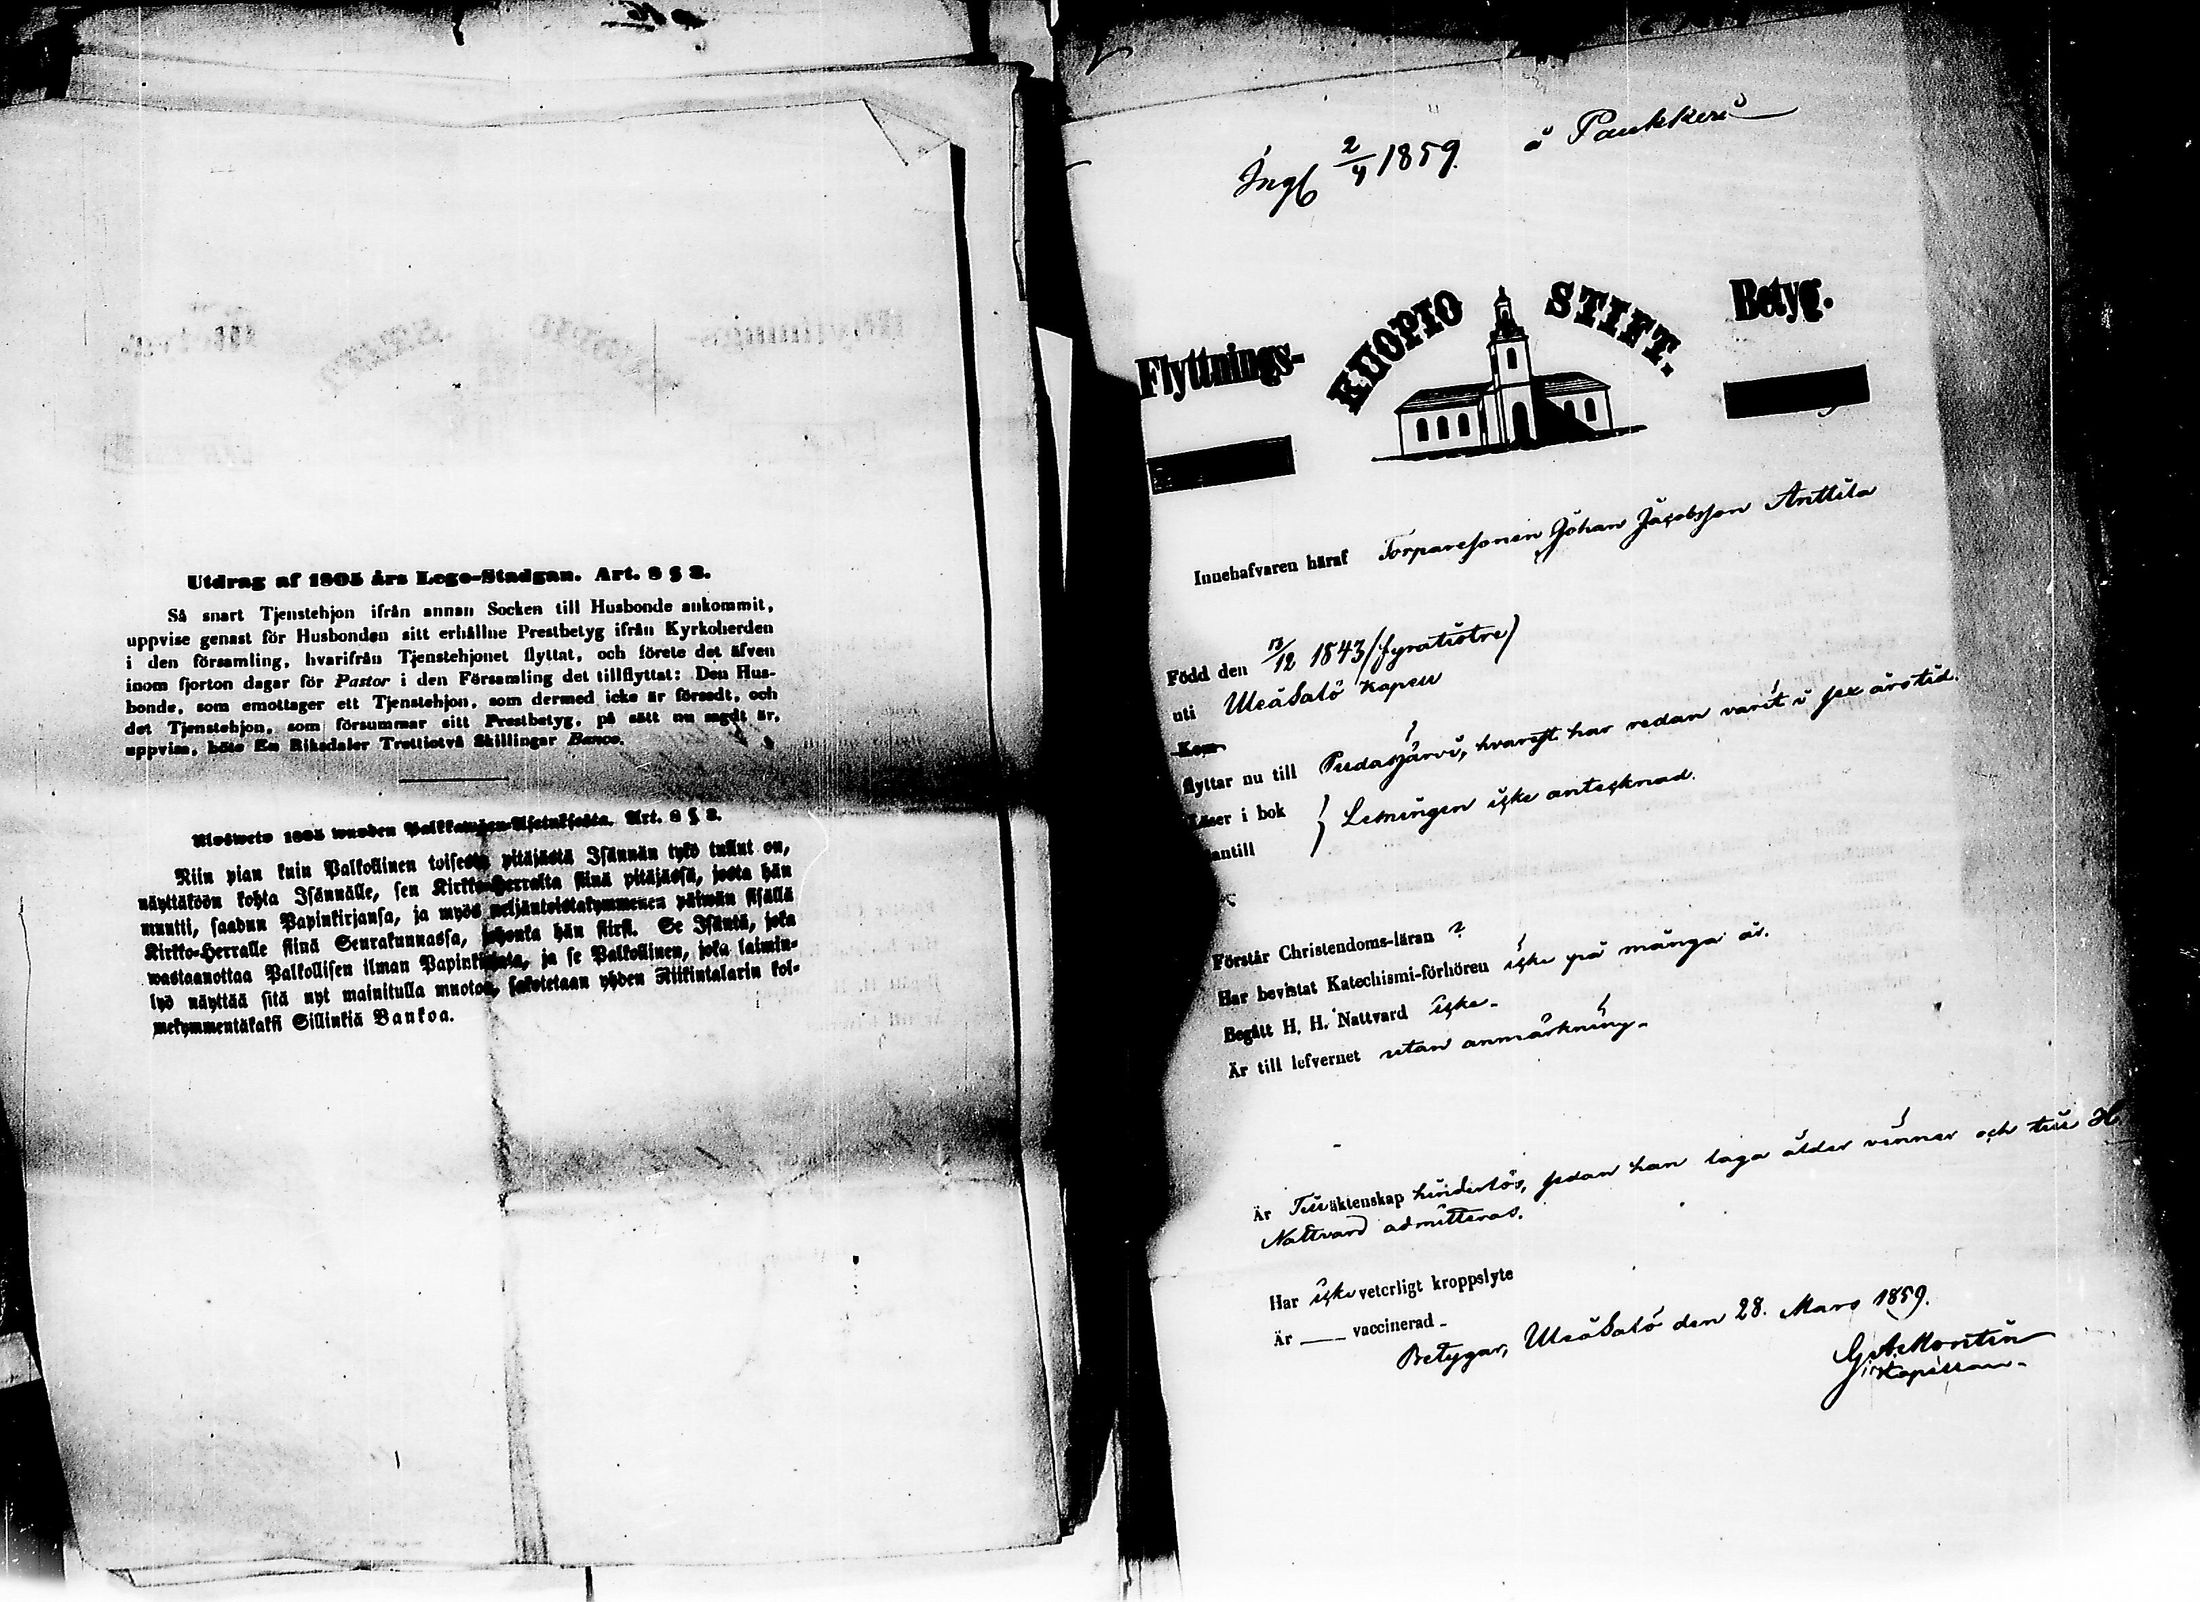 Utdrag af 1805 års Lego-Stadgan. Art. 8 § 3.
Så snart Tjenstehjon ifrån annan Socken till Husbonde ankommit,
uppvise genast för Husbonden sitt erhållne Prestbetyg ifrån Kyrkoherden
i den församling, hvarifrån Tjenstehjonet flyttat, och förete det äfven
inom fjorton dagar för Pastor i den Församling det tillflyttat: Den Hus-
bonde, som emottager ett Tjenstehjon, som dermed icke är försedt, och
det Tjenstehjon, som försummar sitt Prestbetyg, på sätt nu sagdt är,
uppvisa, böte En Riksdaler Trettiotvå Skillingar Banco.
Ulosweto 1805 wuoden Palkkawäen-Asetuksesta. Art. 8 § 3.
Niin pian kuin Palkollinen toisesta pitäjästä Isännän tykö tullut on,
näyttäköön kohta Isännälle, sen Kirkko-Herralta siinä pitäjässä, josta hän
muutti, saadun Papinkirjansa, ja myös neljäntoistakymmenen päiwän sisällä
Kirkko-Herralle siinä Seurakunnassa, johonka hän siirsi. Se Isäntä, joka
wastaanottaa Palkollisen ilman Papinkirjata, ja se Palkollinen, joka laimin-
lyö näyttää sitä nyt mainitulla muotoa, sakotetaan yhden Riikintalarin kol-
mekymmentäkaksi Sillinkiä Bankoa.
Ingf 2/4 1859. å Paukkeri
Flyttnings- KUOPIO STIFT. Betyg.
Innehafvaren häraf Torparesonen Johan Jacobsson Anttila
Född den 12 1843 (fyratiotre)
uti Uleåsalo Kapell
Kom
flyttar nu till Pudasjärvi, hvarest har redan varit i sex årstid.
Läser i bok } Läsningen icke antecknad.
antill
Förstår Christendoms-läran ?
Har bevistat Katechismi-förhören icke på många år.
Begått H. H. Nattvard icke.
Är till lefvernet utan anmärkning.
Är Till äktenskap hinderlös, sedan han laga ålder vinner och till H
Nattvard admitteras.
Har icke veterligt kroppslyte
Är —— vaccinerad.
Betygar, Uleåsalo den 28. Mars 1859.
Kapellan.